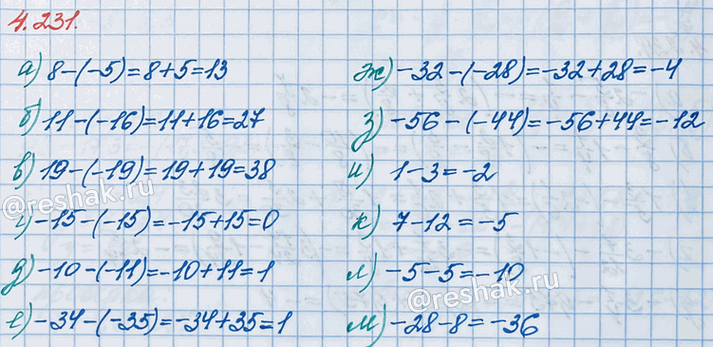 4.231.
а) 8-(-5)=8+5=13
б) 11-(-16)=11+16=27
в) 19-(-19)=19+19=38
г) -15-(-15)=-15+15=0
д) -10-(-11)=-10+11=1
е) -34-(-35)=-34+35=1
ж) -32-(-28)=-32+28=-4
з) -56-(-44)=-56+44=-12
и) 1-3=-2
к) 7-12=-5
л) -5-5=-10
м) -28-8=-36
@reshak.ru
@reshak.ru